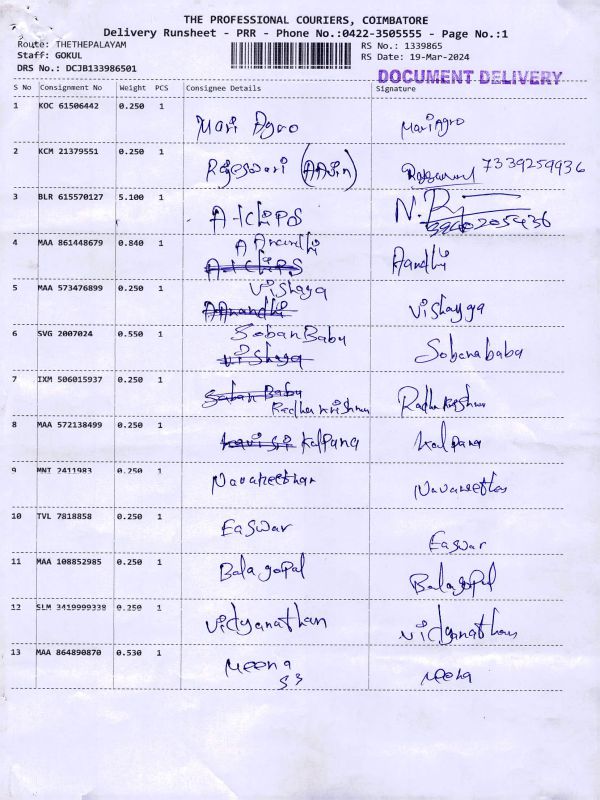 THE PROFESSIONAL COURIERS, COIMBATORE
Delivery Runsheet - PRR - Phone No.:0422-3505555 - Page No.:1
Route: THETHEPALAYAM RS No.: 1339865
Staff: GOKUL RS Date: 19-Mar-2024
DRS No.: DCJB133986501
DOCUMENT DELIVERY
S No Consignment No Weight PCS Consignee Details Signature
1 KOC 61506442 0.250 1
Mari Agro Mari Agro
2 KCM 21379551 0.250 1
Rajeswari (AAJin) 7339259936
3 BLR 615570127 5.100 1
A-1 CHIPS N.
4 MAA 861448679 0.840 1
AAnandhi
A-1 CHIPS Aandhi
5 MAA 573476899 0.250 1
Vishaya
AAnandhi Vishayga
6 SVG 2007024 0.550 1
Soban Babu
Vishaya Sobenababa
7 IXM 506015937 0.250 1
Soban Babu
Radha Krishnan Radha Krishnan
8 MAA 572138499 0.250 1
Kavi Sri Kalpana Kalpana
9 MNT 2411983 0.250 1
Navaneethan Navaneethan
10 TVL 7818858 0.250 1
Easwar Easwar
11 MAA 108852985 0.250 1
Balagopal Balagopal
12 SLM 3419999338 0.250 1
Vidyanathan Vidyanathan
13 MAA 864890870 0.530 1
Meena Meena